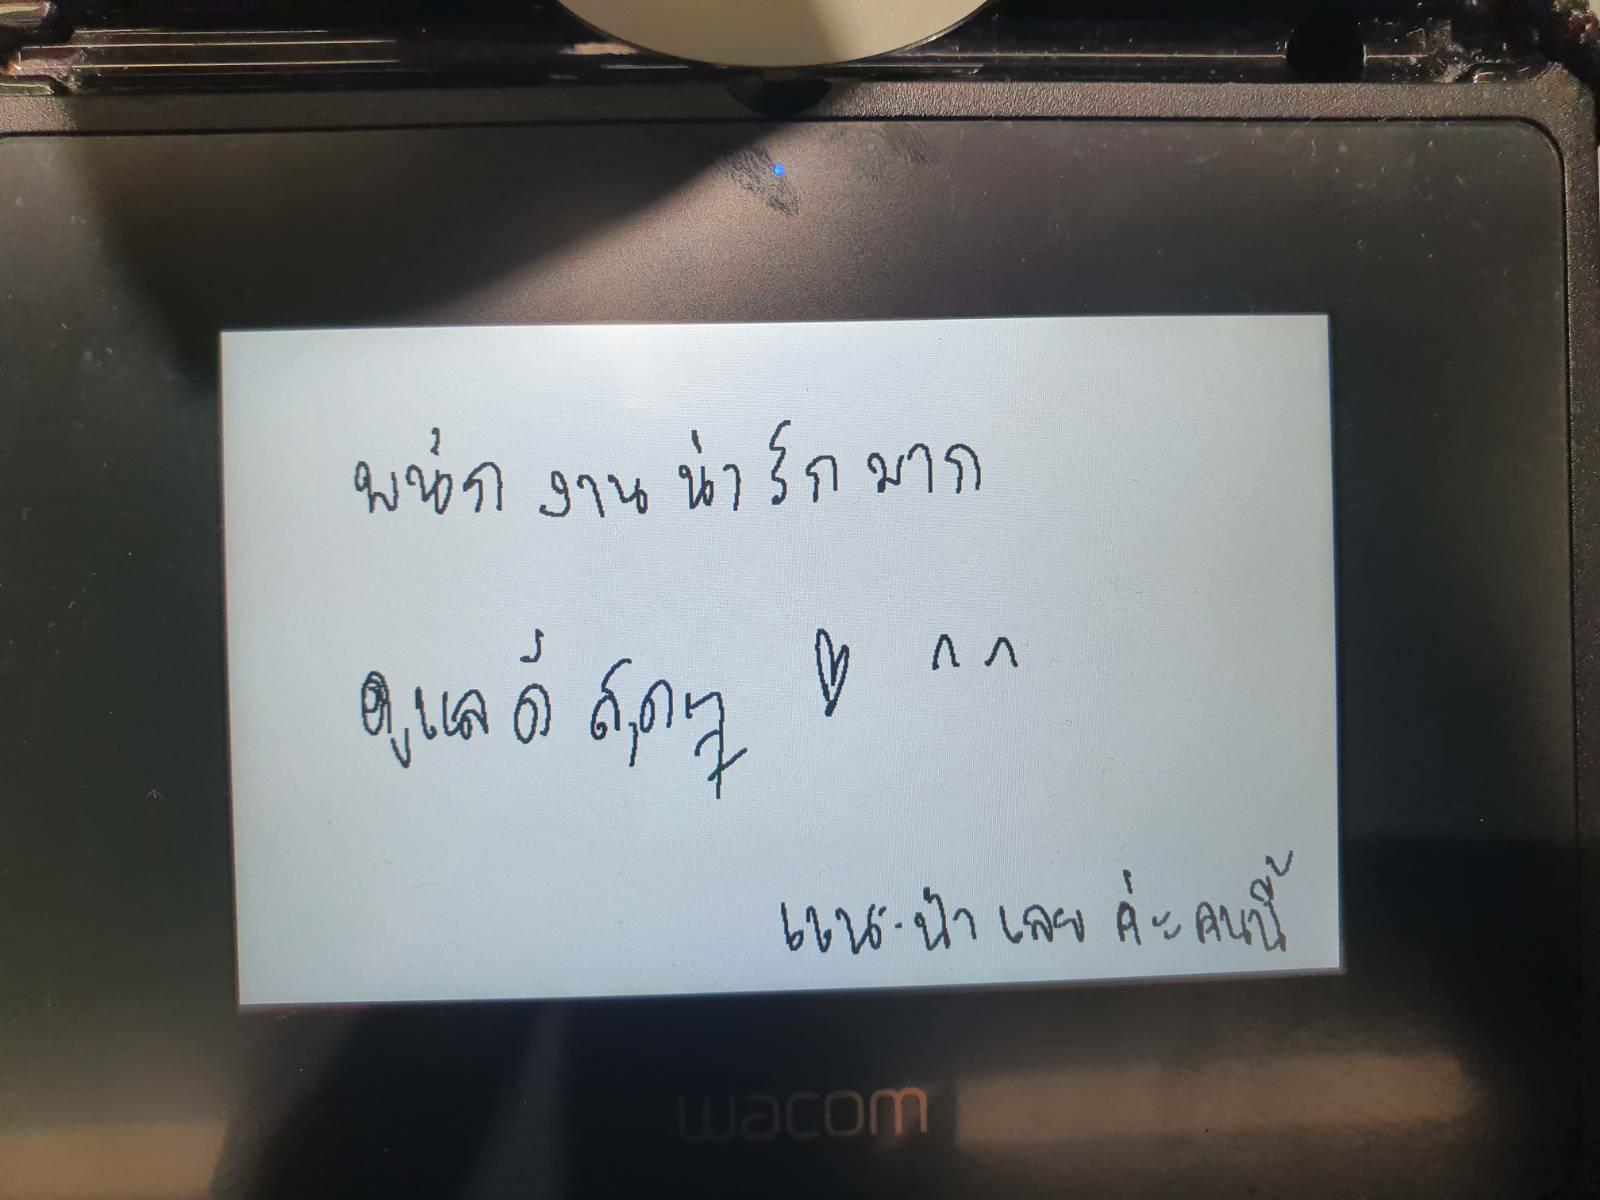 พนักงานน่ารักมาก
ดูแลดีสุดๆ ♡ ^ ^
แนะนำเลยค่ะคนนี้
wacom